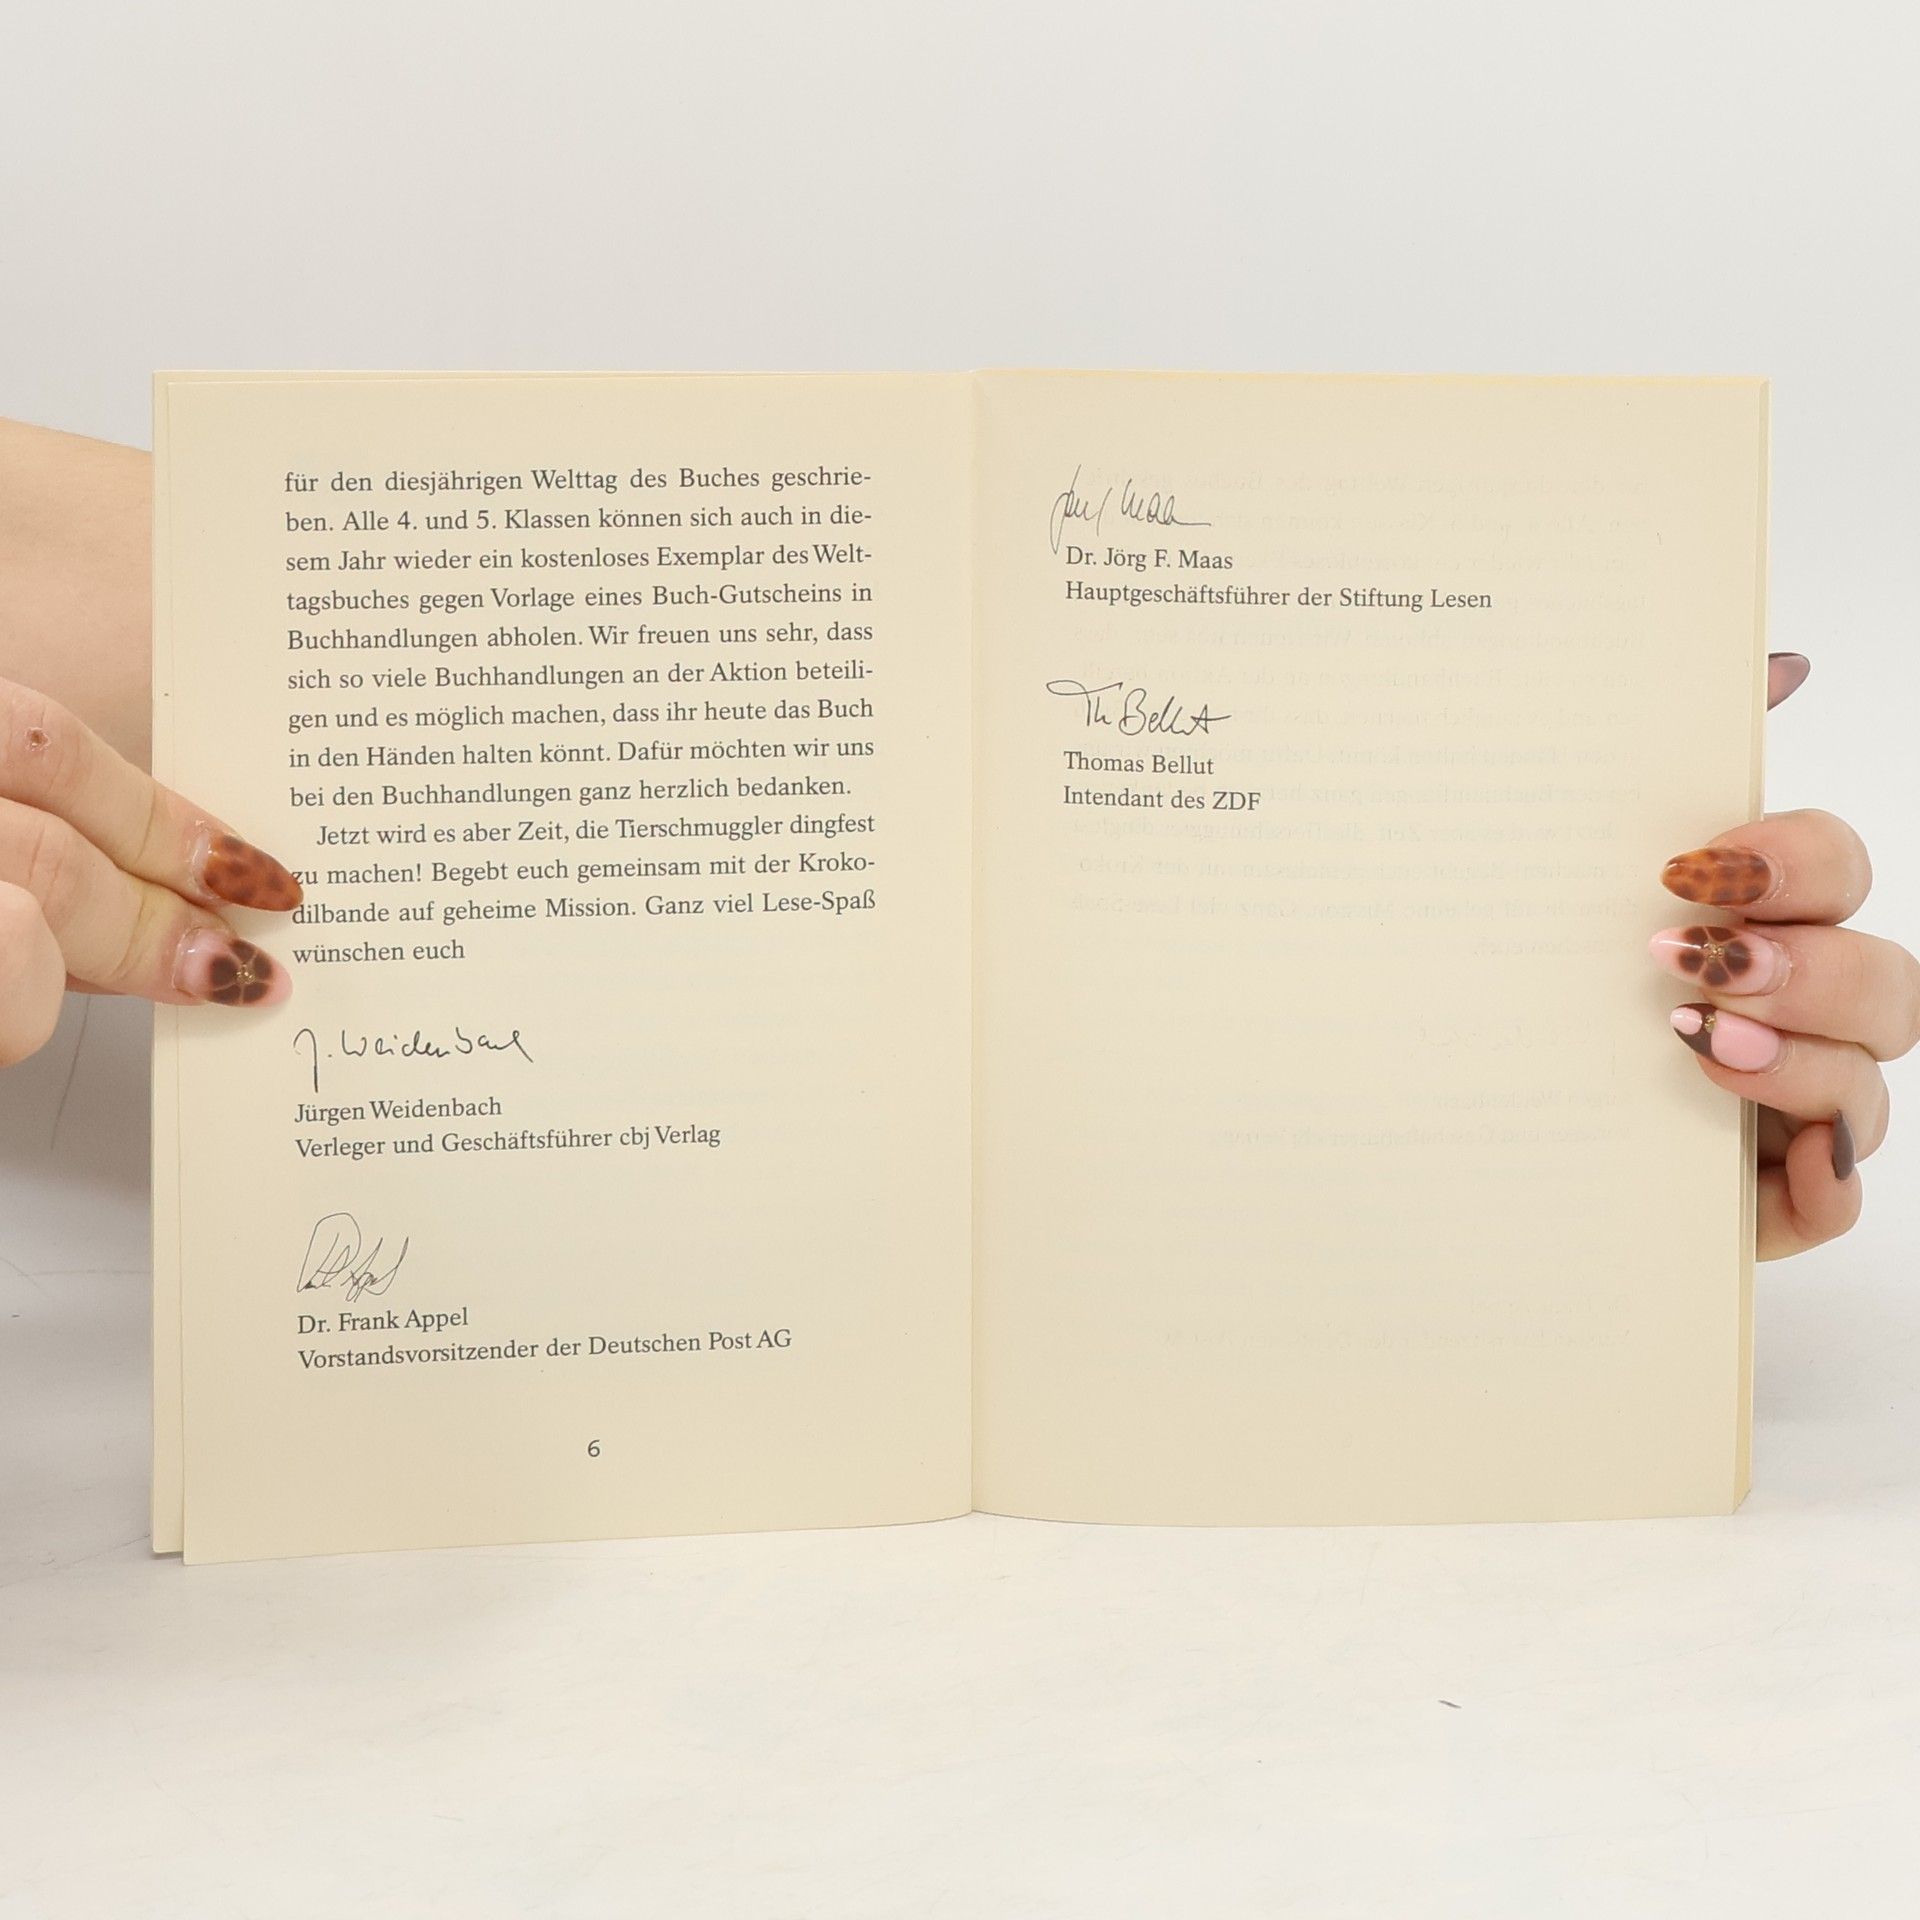 für den diesjährigen Welttag des Buches geschrie-
ben. Alle 4. und 5. Klassen können sich auch in die-
sem Jahr wieder ein kostenloses Exemplar des Welt-
tagsbuches gegen Vorlage eines Buch-Gutscheins in
Buchhandlungen abholen. Wir freuen uns sehr, dass
sich so viele Buchhandlungen an der Aktion beteili-
gen und es möglich machen, dass ihr heute das Buch
in den Händen halten könnt. Dafür möchten wir uns
bei den Buchhandlungen ganz herzlich bedanken.
Jetzt wird es aber Zeit, die Tierschmuggler dingfest
zu machen! Begebt euch gemeinsam mit der Kroko-
dilbande auf geheime Mission. Ganz viel Lese-Spaß
wünschen euch
J. Weidenbach
Jürgen Weidenbach
Verleger und Geschäftsführer cbj Verlag
Dr. Frank Appel
Vorstandsvorsitzender der Deutschen Post AG
6
Maas
Dr. Jörg F. Maas
Hauptgeschäftsführer der Stiftung Lesen
Th Bellut
Thomas Bellut
Intendant des ZDF